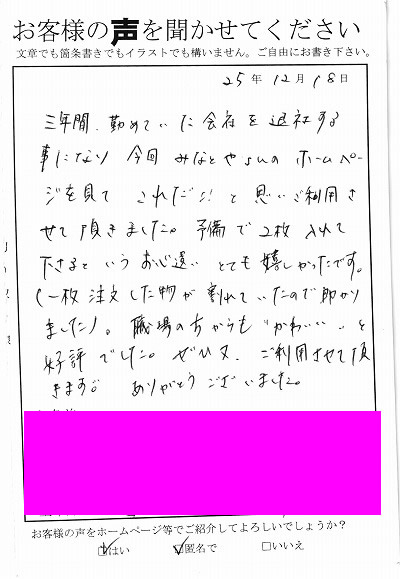 お客様の声を聞かせてください
文章でも箇条書きでもイラストでも構いません。ご自由にお書き下さい。
25年12月18日
三年間、勤めていた会社を退社する
事になり 今回 みなとやsunのホームペー
ジを見て これだっ!と思いご利用さ
せて頂きました。予備で2枚入れて
下さるというお心遣い とても嬉しかったです。
(一枚注文した物が割れていたので助かり
ました)。職場の方からも"かわいい"と
好評でした。ぜひ又、ご利用させて頂
きます。 ありがとうございました。
お客様の声をホームページ等でご紹介してよろしいでしょうか?
☑はい ☑匿名で □いいえ